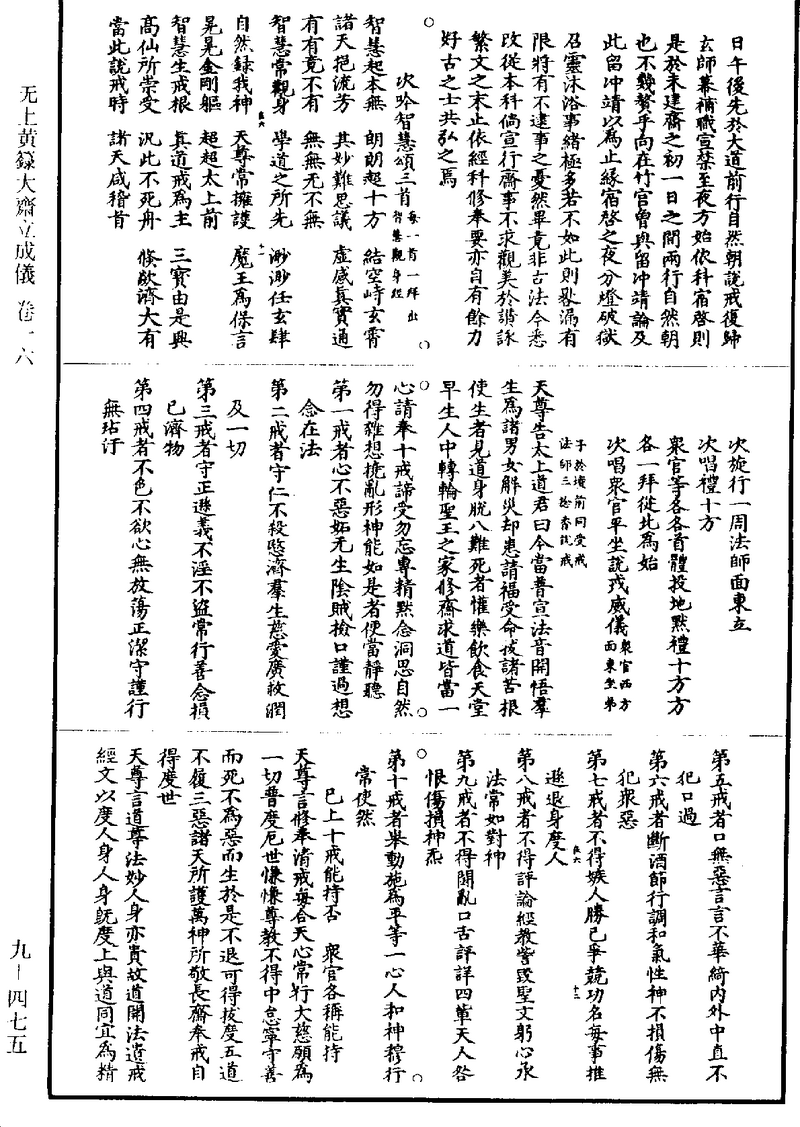 日午後先於大道前行自然朝說戒復歸
玄師幕補職宣禁至夜方始依科宿啓則
是於未建齋之初一日之間兩行自然朝
也不幾贅乎向在竹宮曾與留冲靖論及
此留冲靖以為止緣宿啓之夜分燈破獄
召靈沐浴事緒極多若不如此則畧漏有
限將有不逮事之憂然畢竟非古法今悉
改從本科倘宣行齋事不求觀美於讚詠
繁文之末止依經科修奉要亦自有餘力
好古之士共弘之焉
次吟智慧頌三首每一首一拜出智慧觀身經
智慧起本無 朗朗超十方 結空峙玄霄
諸天挹流芳 其妙難思議 虛感真實通
有有竟不有 無無无不無
智慧常觀身 學道之所先 渺渺任玄肆
自然錄我神 天尊常擁護 魔王為保言
晃晃金剛軀 超超太上前
智慧生戒根 真道戒為主 三寶由是興
高仙所崇受 汎此不死舟 倏歘濟大有
當此說戒時 諸天咸稽首
次旋行一周法師面東立
次唱禮十方
衆官等各各首體投地黙禮十方方
各一拜從北為始
次唱衆官平坐說戒威儀衆官西方面東坐弟
子於壇前同受戒法師三捻香說戒
天尊告太上道君曰今當普宣法音開悟羣
生為諸男女解災却患請福受命拔諸苦根
使生者見道身脫八難死者懽樂飲食天堂
早生人中轉輪聖王之家修齋求道皆當一
心請奉十戒諦受勿忘專精黙念洞思自然
勿得雜想撓亂形神能如是者便當靜聽
第一戒者心不惡妬无生陰賊檢口謹過想
念在法
第二戒者守仁不殺愍濟羣生慈愛廣救潤
及一切
第三戒者守正遜義不淫不盜常行善念損
己濟物
第四戒者不色不欲心無放蕩正潔守謹行
無玷汙
第五戒者口無惡言言不華綺內外中直不
犯口過
第六戒者斷酒節行調和氣性神不損傷無
犯衆惡
第七戒者不得嫉人勝己爭競功名每事推
遜退身度人
第八戒者不得評論經教訾毀聖文躬心承
法常如對神
第九戒者不得鬪亂口舌評詳四輩天人咎
恨傷損神炁
第十戒者舉動施為平等一心人和神穆行
常使然
已上十戒能持否 衆官各稱能持
天尊言修奉清戒每合天心常行大慈願為
一切普度厄世慊慊尊教不得中怠寧守善
而死不為惡而生於是不退可得拔度五道
不履三惡諸天所護萬神所敬長齋奉戒自
得度世
天尊言道尊法妙人身亦貴故道開法遺戒
經文以度人身人身旣度上與道同宜為精
无上黃籙大齋立成儀 卷一六
九-四七五